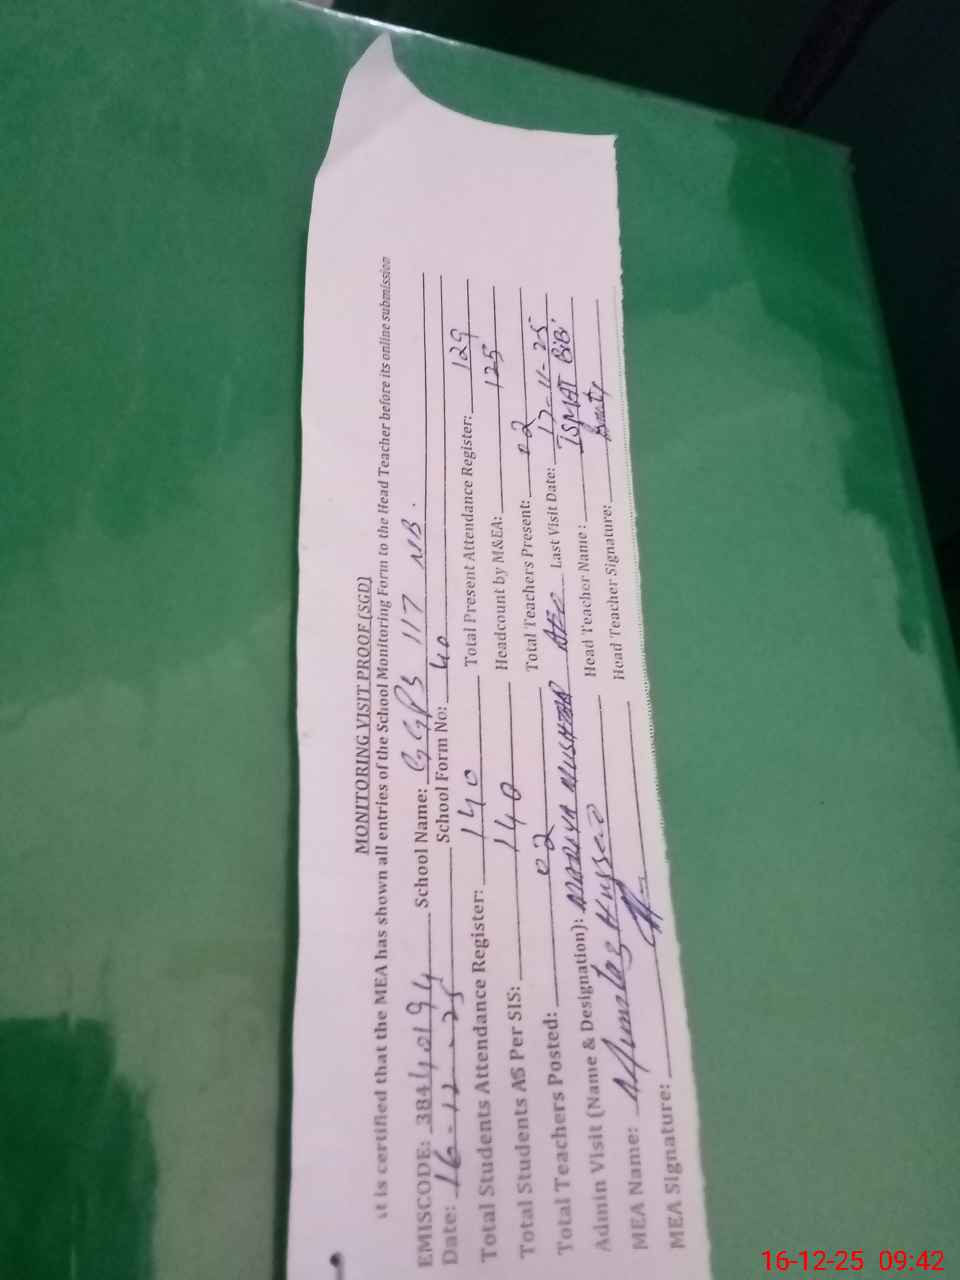 MONITORING VISIT PROOF (SGD)
it is certified that the MEA has shown all entries of the School Monitoring Form to the Head Teacher before its online submission
EMISCODE: 38440194 School Name: GGPS 117 NB.
Date: 16-12-25 School Form No: 40
Total Students Attendance Register: 140 Total Present Attendance Register: 129
Total Students AS Per SIS: 140 Headcount by M&EA: 125
Total Teachers Posted: 02 Total Teachers Present: 02
Admin Visit (Name & Designation): MUSHTAQ AEO Last Visit Date: 17-11-25
MEA Name: Mumtaz Hussain Head Teacher Name: ISMAT BiBi
MEA Signature: Head Teacher Signature:
16-12-25 09:42